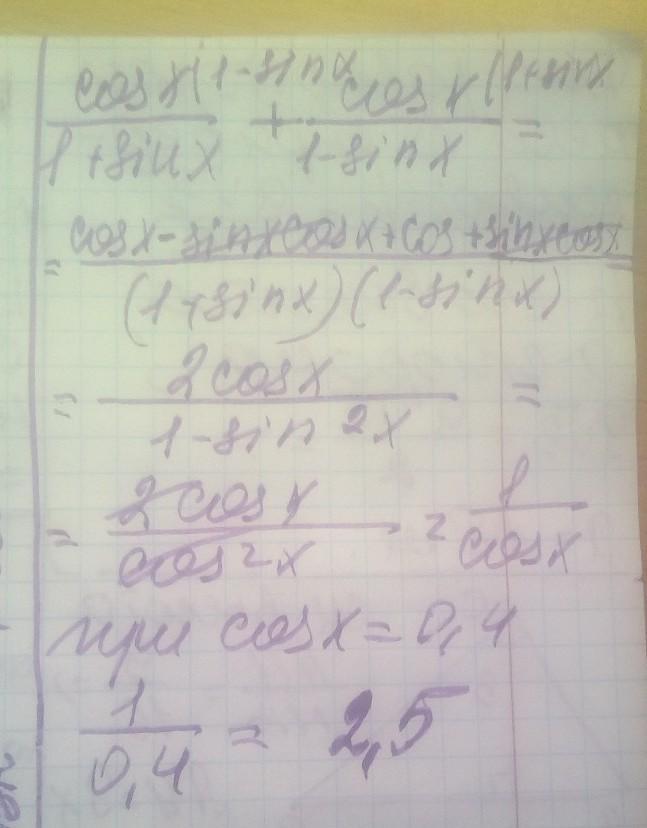 cos x(1-sin x cos x (1+sin x
――― + ――― =
1+sin x 1-sin x
= cos x - sin x cos x + cos + sin x cos x
(1+sin x)(1-sin x)
= 2 cos x =
1-sin ²x
= 2 cos x = 1
cos²x cos x
при cos x = 0,4
1 = 2,5
0,4